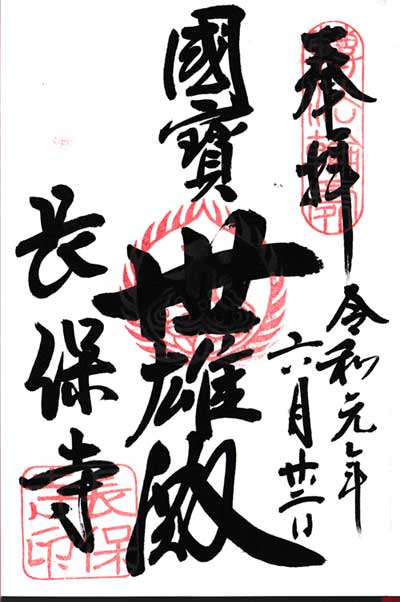 奉拝
令和元年
六月廿二日
國寶
世雄殿
長保寺
長保
寺印